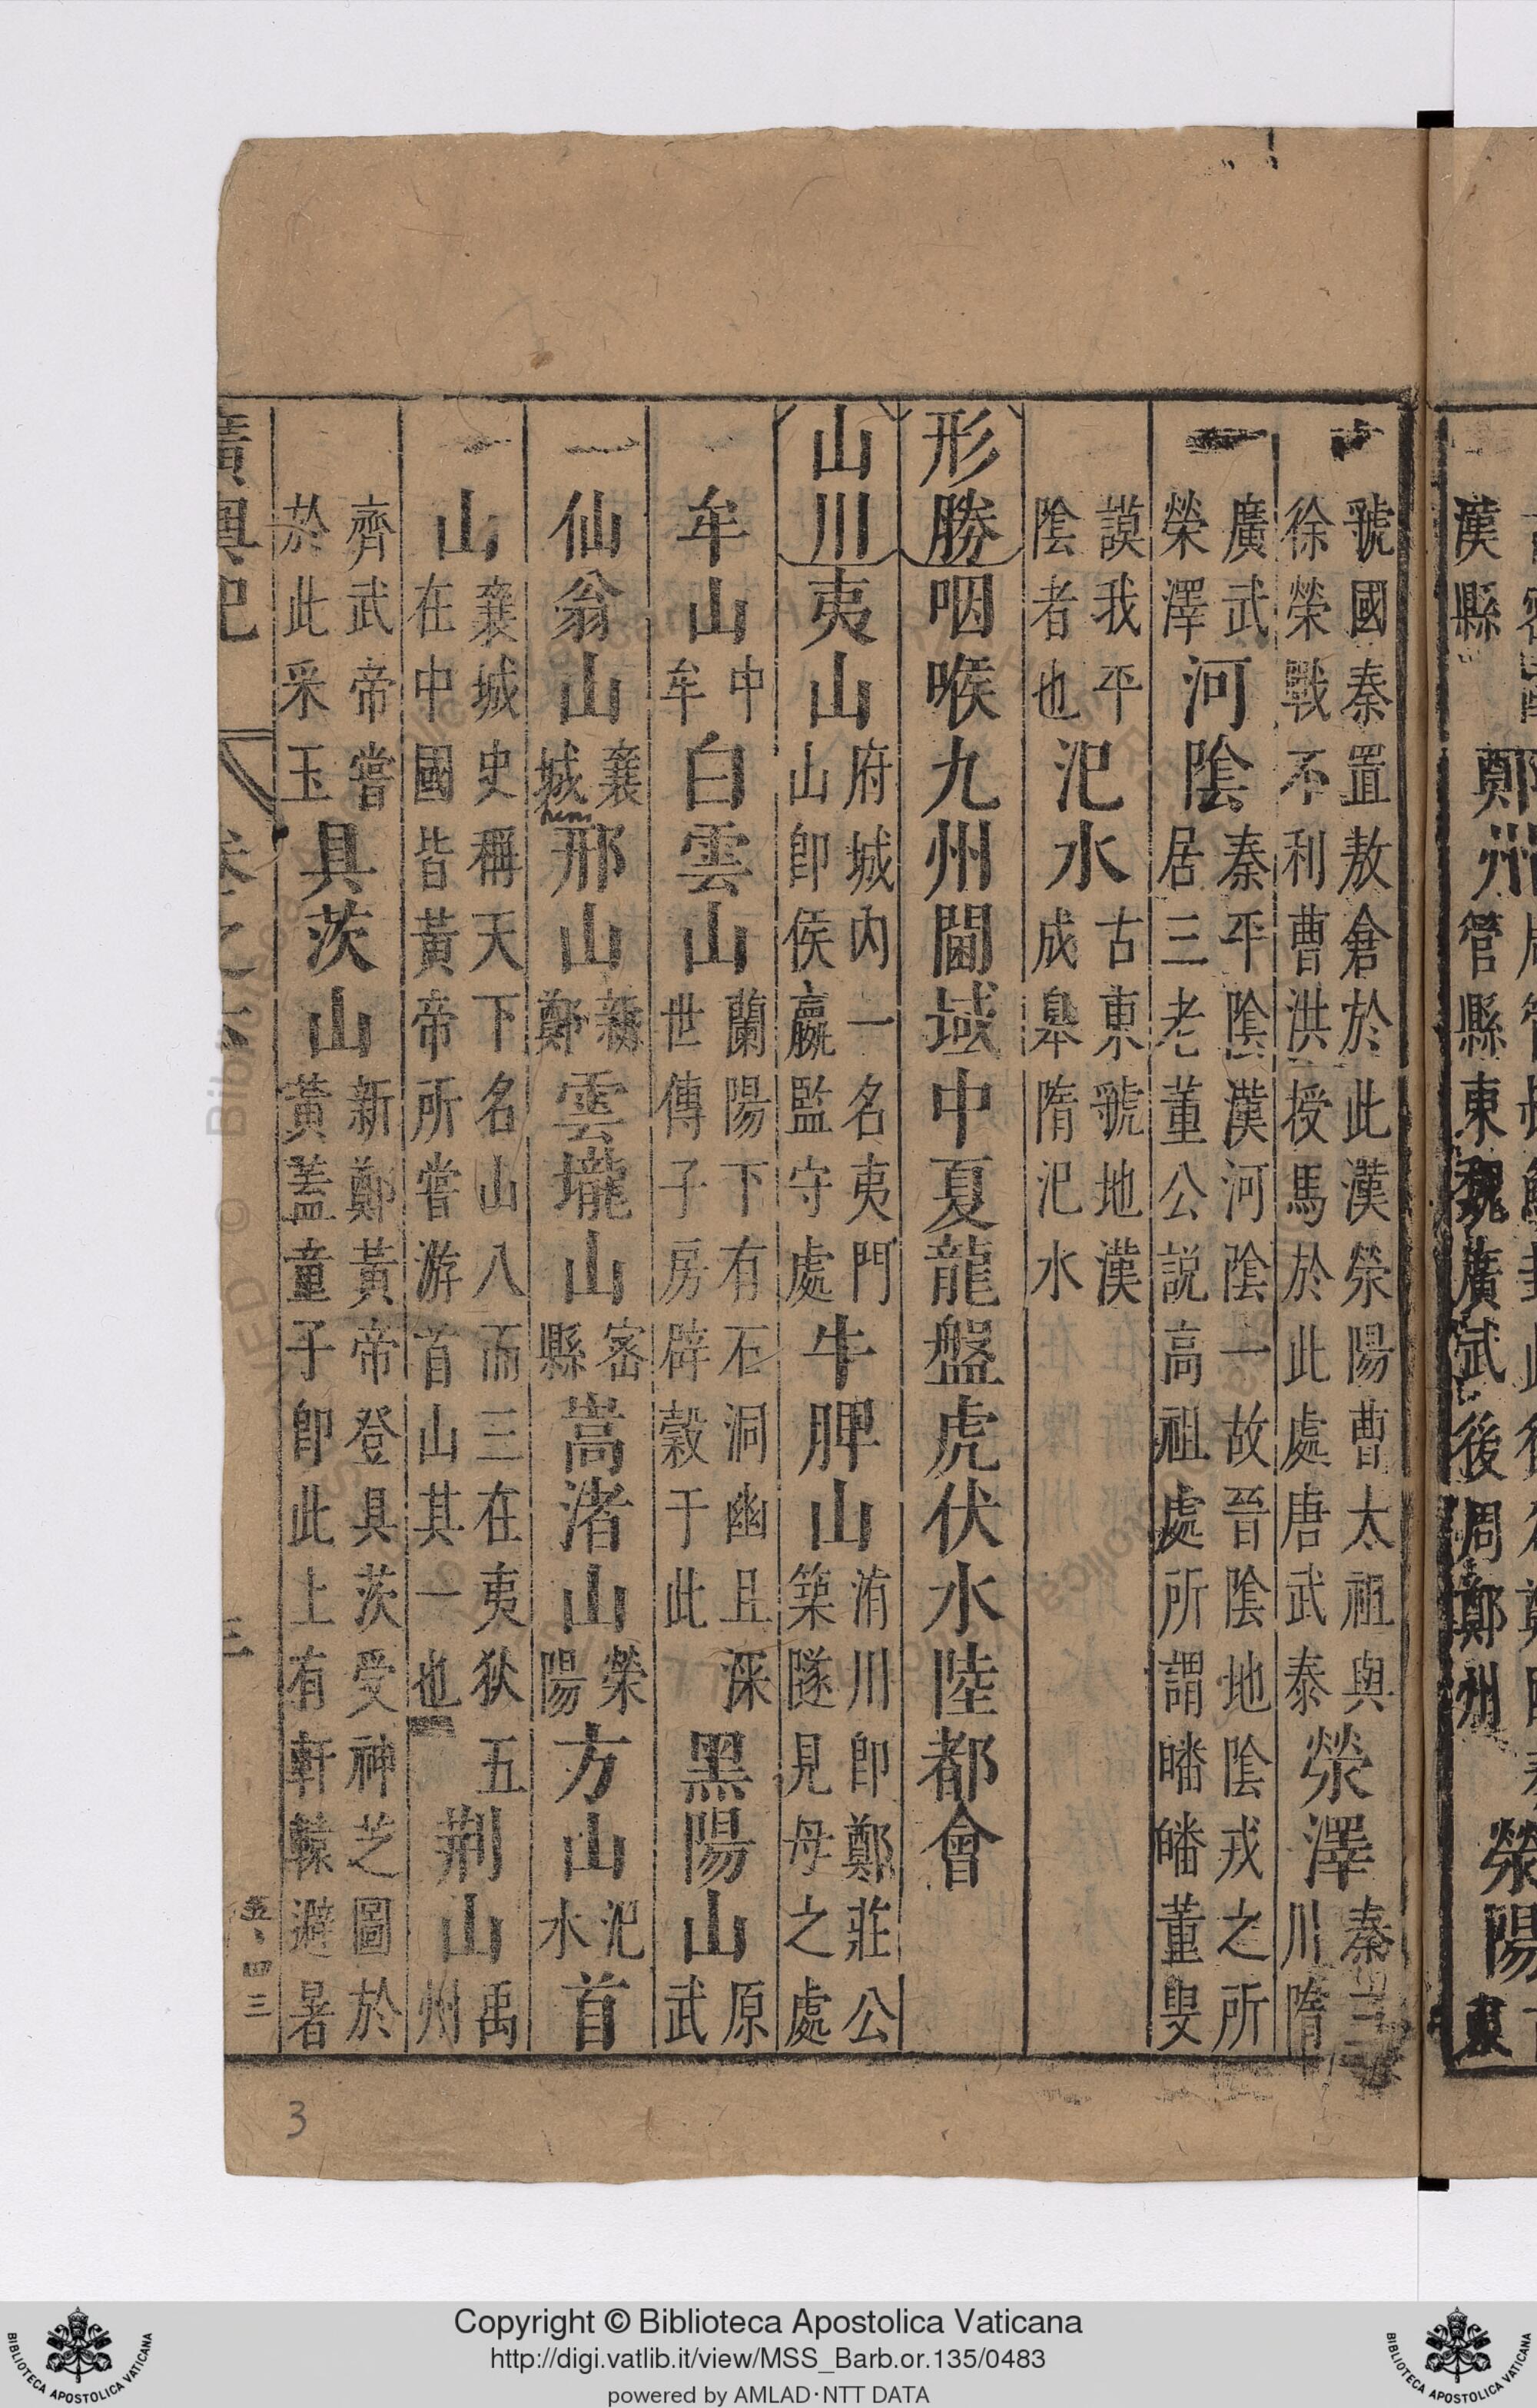 虢國秦置敖倉於此漢滎陽曹太祖與徐榮戰不利曹洪授馬於此處唐武泰滎澤秦川隋
廣武滎澤河陰秦平陰漢河陰一故晉陰地陰戎之所居三老董公説高祖處所謂皤皤董叟
謨我平陰者也汜水古東虢地漢成皋隋汜水
形勝咽喉九州閫域中夏龍盤虎伏水陸都會
山川夷山府城內一名夷門山卽侯嬴監守處牛脾山洧川卽鄭莊公築隧見母之處
牟山中牟白雲山蘭陽下有石洞幽且深世傳子房辟穀于此黑陽山原武
仙翁山襄城邢山新鄭雲巃山密縣嵩渚山滎陽方山汜水首
山襄城史稱天下名山八而三在夷狄五在中國皆黃帝所嘗游首山其一也荆山禹州
齊武帝嘗於此采玉具茨山新鄭黃帝登具茨受神芝圖於黃蓋童子卽此上有軒轅避暑
廣輿記 卷之六
三
五、四三
3
Copyright © Biblioteca Apostolica Vaticana
http://digi.vatlib.it/view/MSS_Barb.or.135/0483
powered by AMLAD·NTT DATA